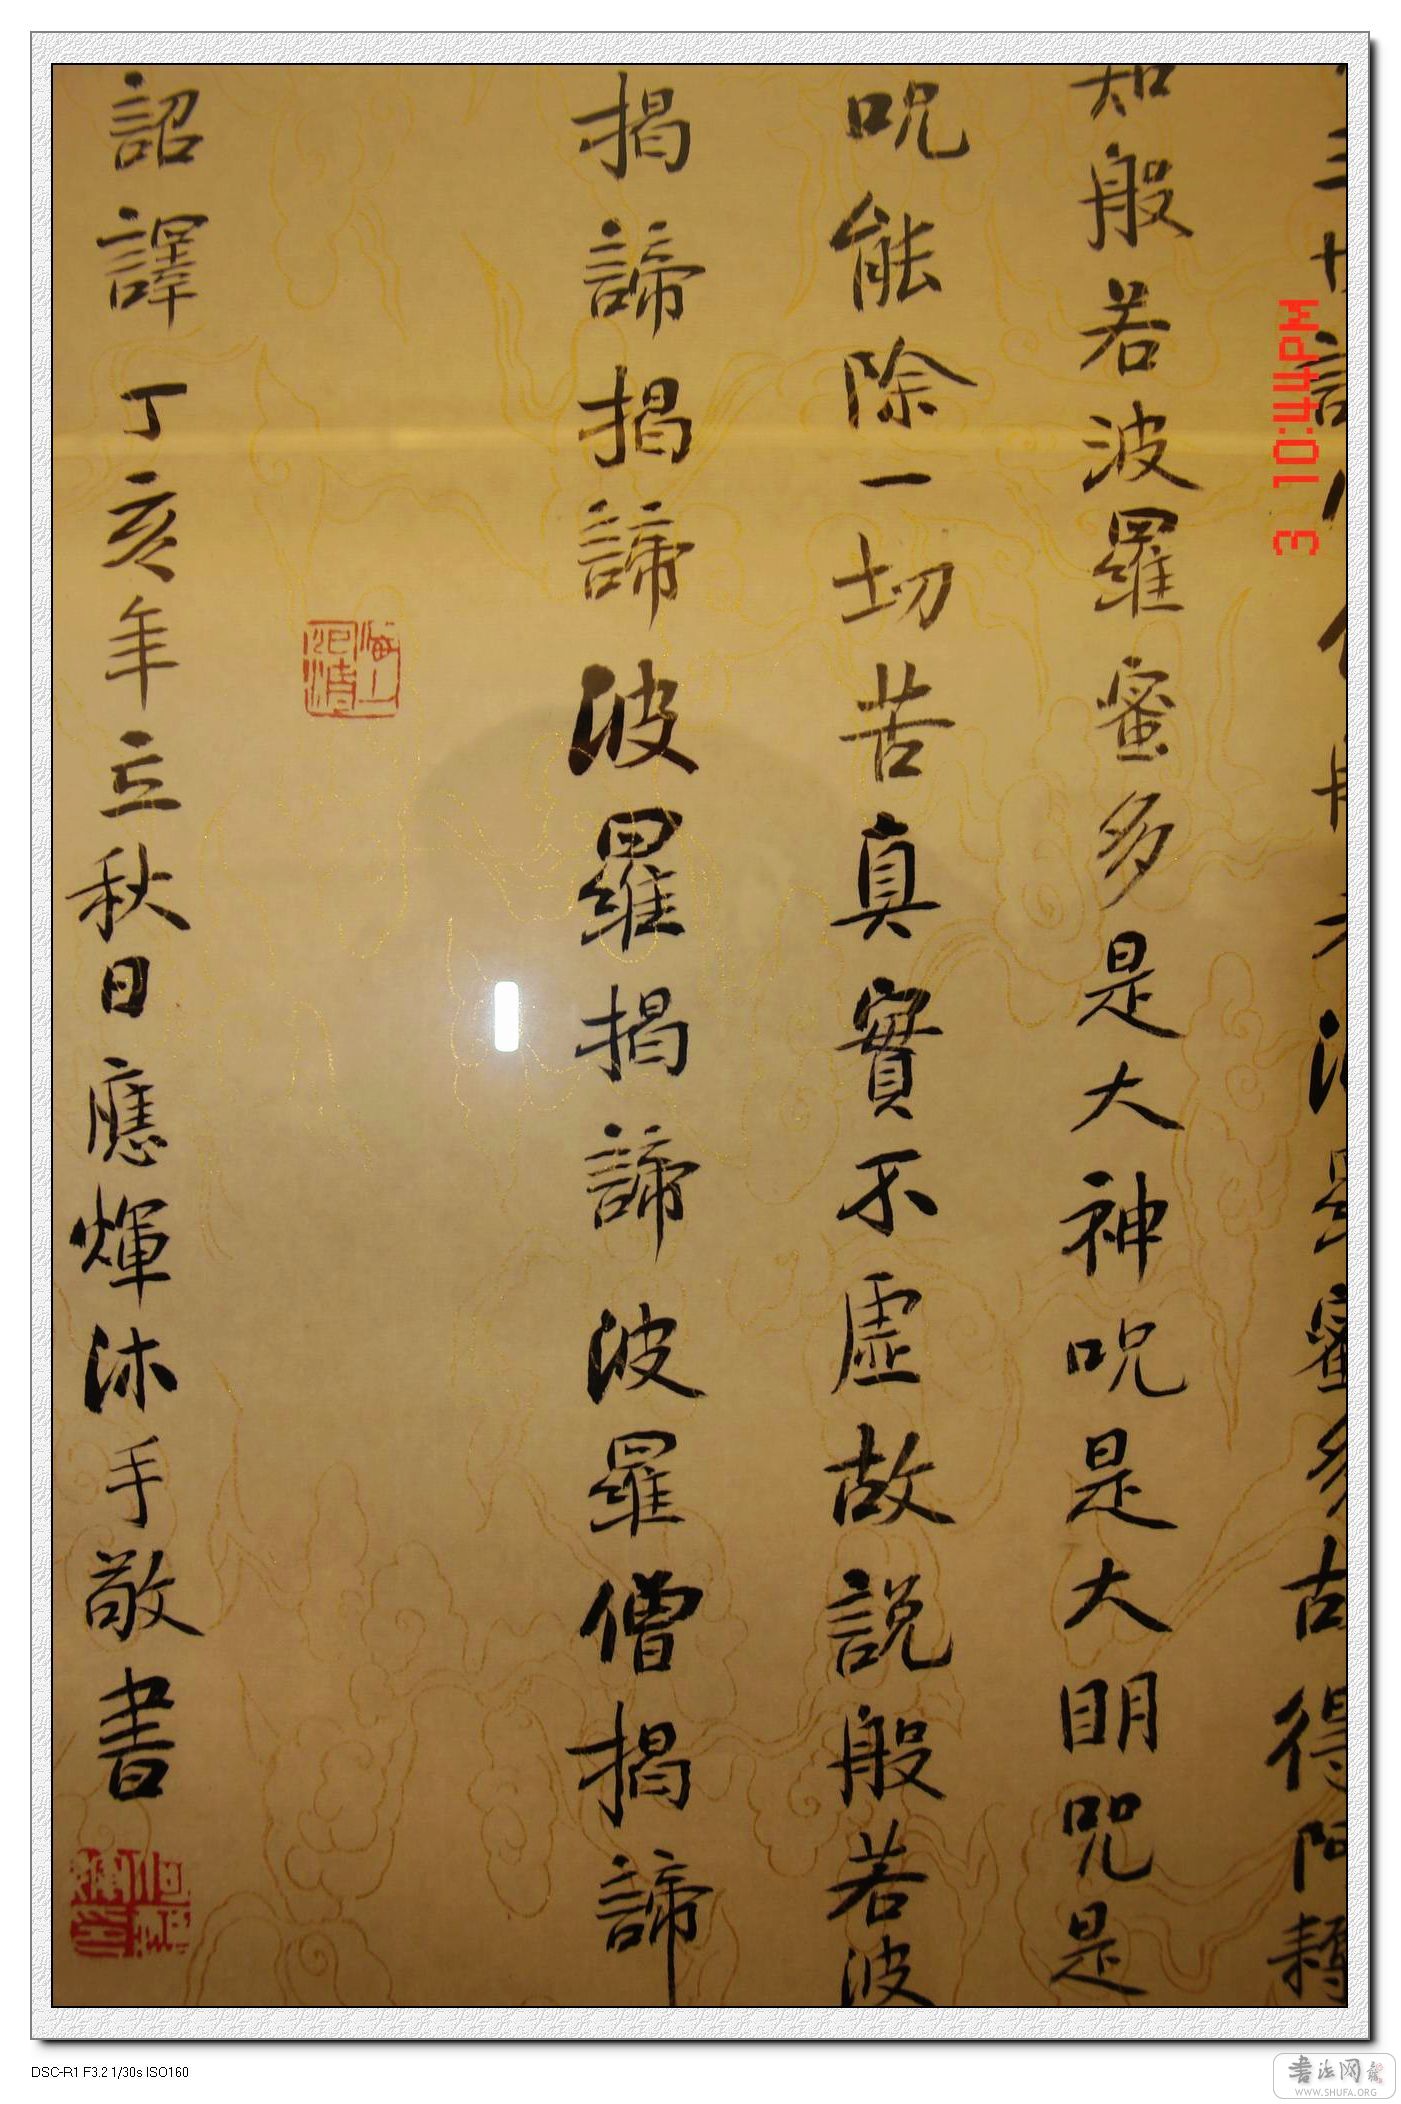 三世諸佛
蜜多故得阿耨
知般若波羅蜜多是大神呪是大明咒是
呪能除一切苦真實不虛故説般若波
揭諦揭諦波羅揭諦波羅僧揭諦
詔譯丁亥年立秋日應煇沐手敬書
海上
10:44PM 3
DSC-R1 F3.2 1/30s ISO160
書法网
WWW.SHUFA.ORG